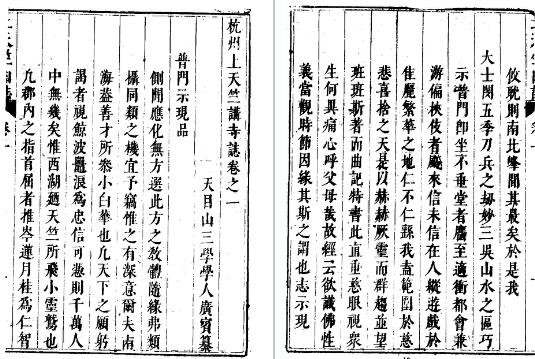 杭州上天竺講寺誌卷之一
天目山三學學人廣賓纂
普門示現品
側聞應化無方選此方之敎體隨緣弗類
攝同類之機宜予竊惟之有深意爾夫南
海益善才所叅小白華也凡天下之顧躬
謁者視鯨波鼉浪爲忠信可憑則千萬人
中無幾矣惟西湖趣天竺所飛小靈鷲也
凢郡內之指首屈者推岑蓮月桂爲仁智
攸就則南北峰間其最矣於是我
大士閔五季刀兵之刼妙三吳山水之區巧
示普門卽坐不垂堂者屬至適衝都會兼
游偏挾伎者颷來信未信在人縱遊戲於
佳麗繁華之地仁不仁繇我盍範圍於慈
悲喜捨之天是以赫赫厥靈而群趨並望
班班斯著而曲記特書此直垂慈眼視衆
生何異痛心呼父母哉故經云欲識佛性
義當觀時節因緣其斯之謂也志示現